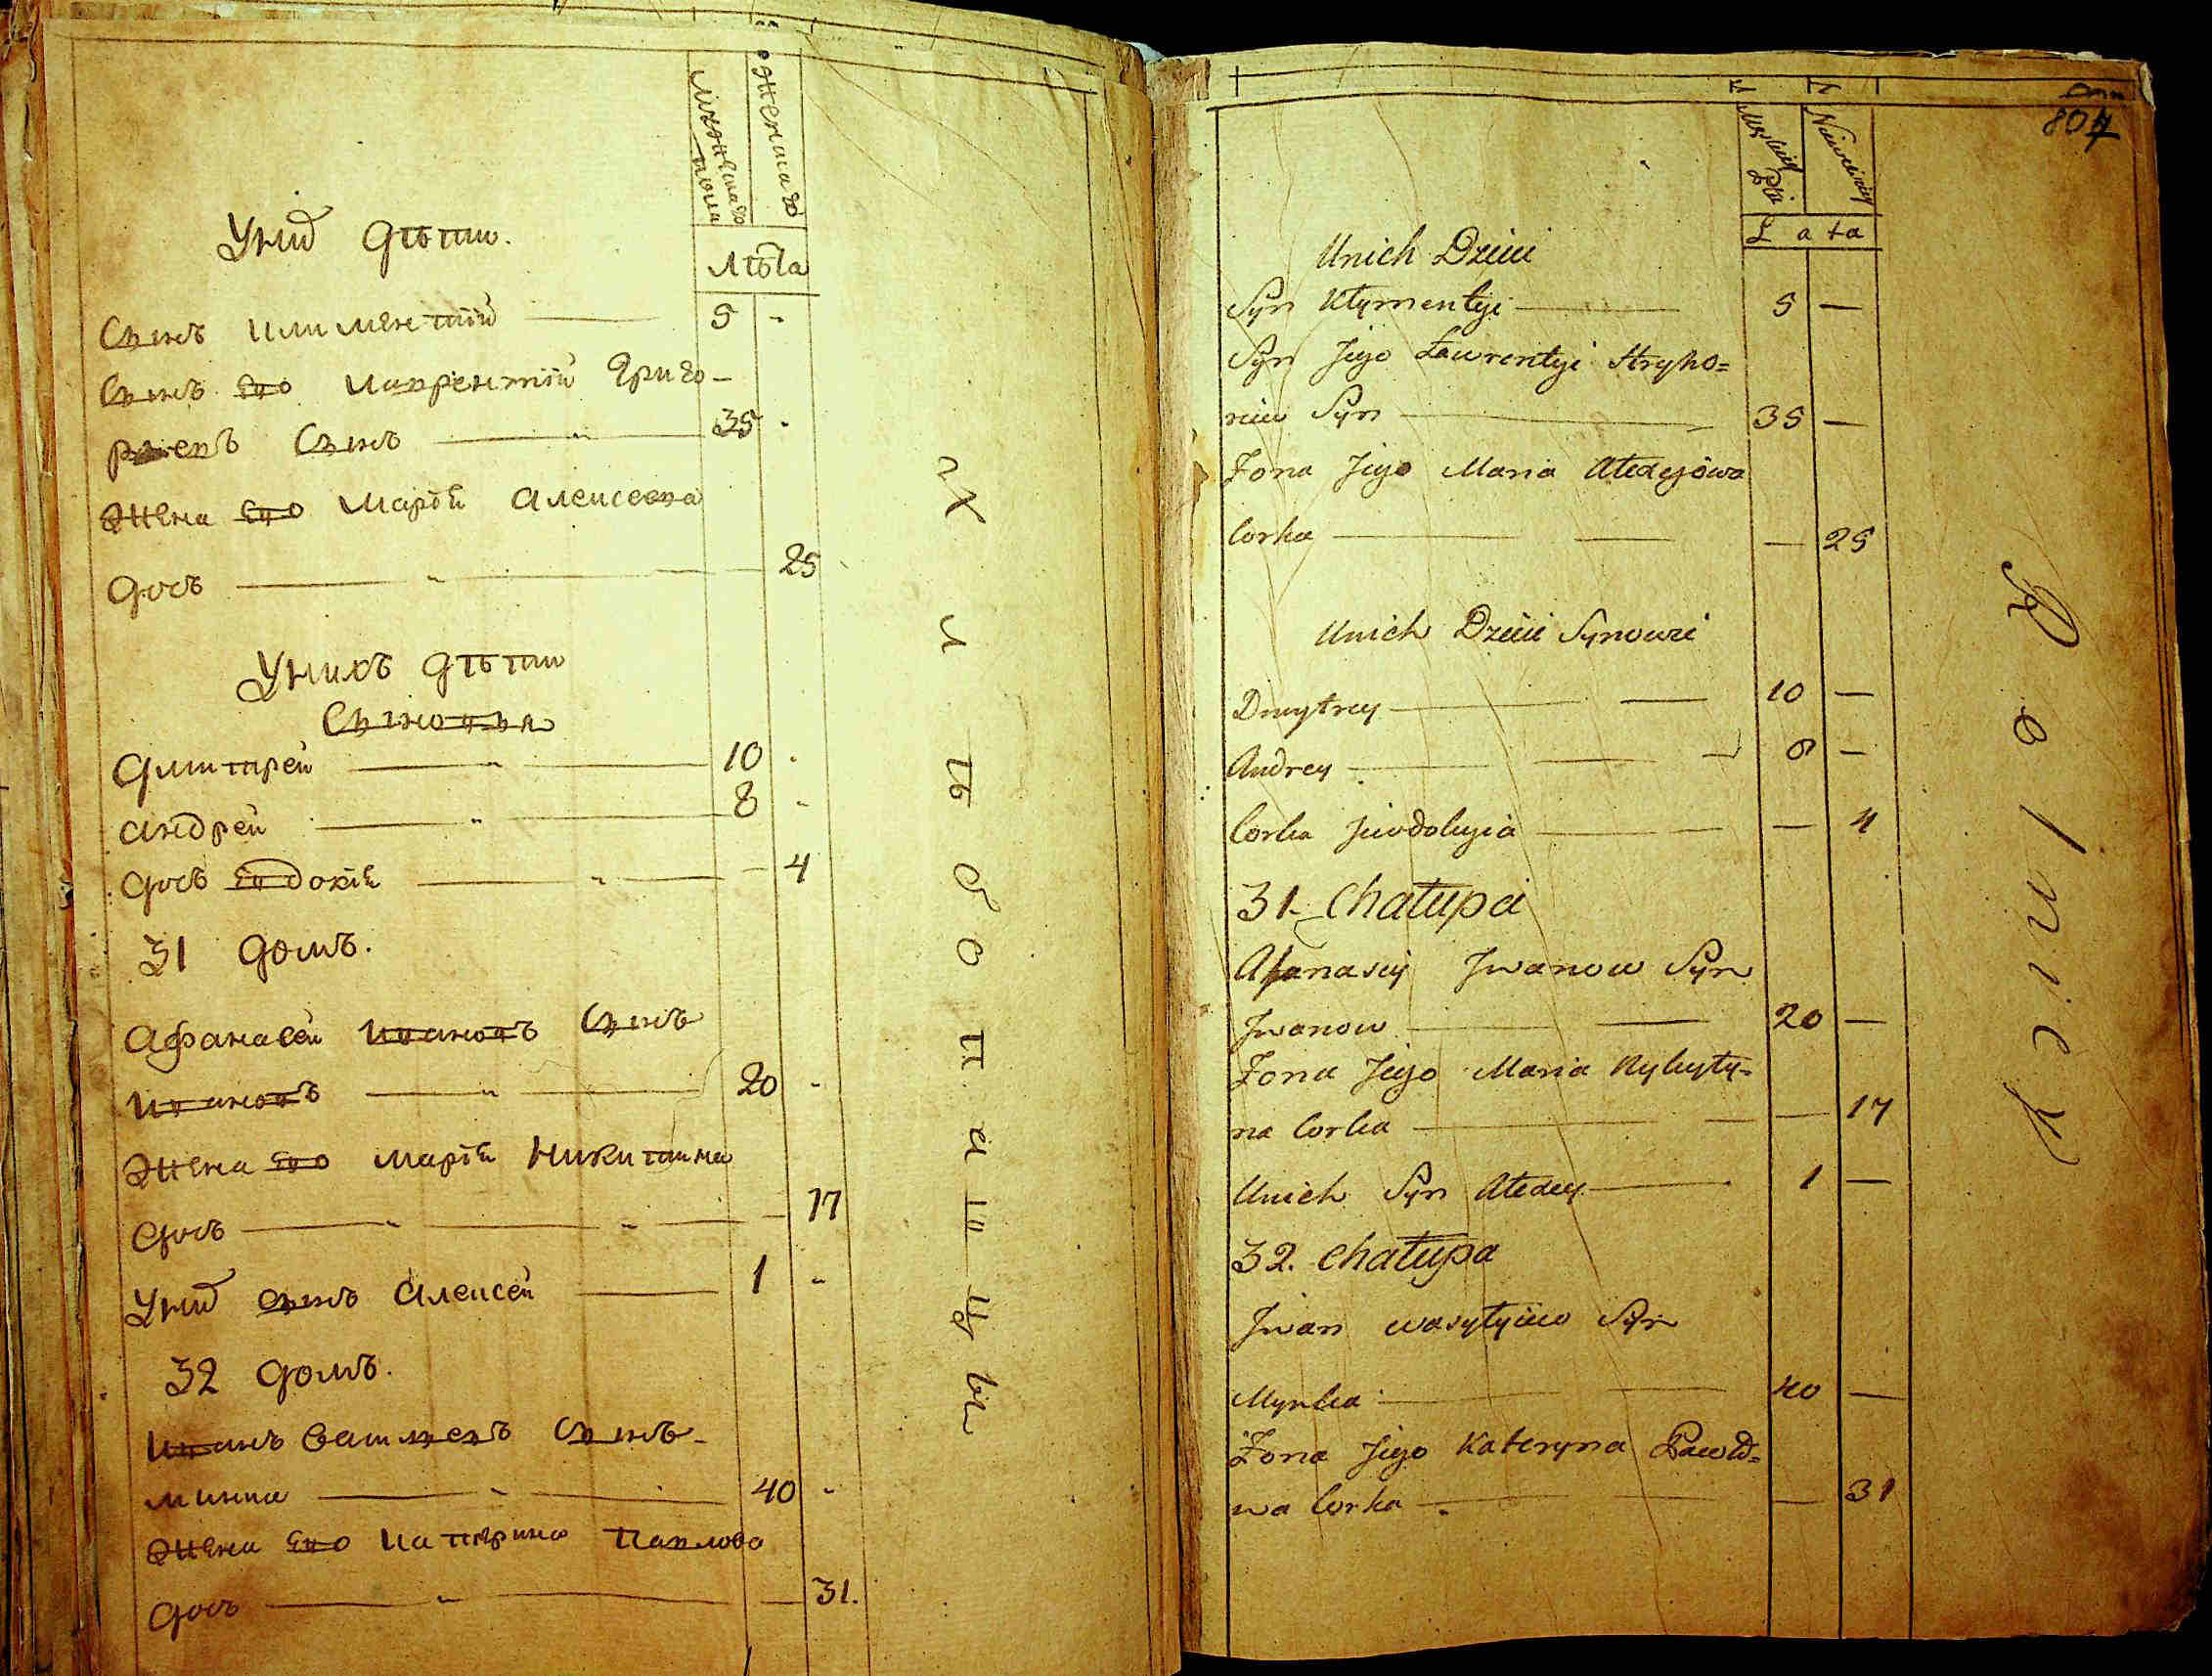 мужеска
пола
женска
Лѣта
Унид дѣти.
Сынъ Климентій 5 -
Сынъ его Лаврентій Григо-
ріевъ Сынъ 35 -
Жена его Марія Алексеева
дочь 25
Унихъ дѣти
Сыновья
Дмитрей 10 -
Андрей 8 -
дочь Евдокія - 4
31 домъ.
Афанасей Ивановъ Сынъ
Ивановъ 20 -
Жена его Марія Никитина
дочь - 17
Унид сынъ Алексей 1 -
32 домъ.
Иванъ Васильевъ Сынъ
Минка 40 -
Жена его Катерина Павлова
дочь - 31.
Хлѣбопашцы
807
Łata
Unich Dzieci
Syn Kłymentyi 5 —
Syn Jego Ławrentyi Hryho=
riiw Syn 35 —
Żona Jego Maria Ałexejowa
Corka — 25
Unich Dzieci Synowie
Dmytrey 10 —
Andrey 8 —
Corka Jewdokyia — 4
31. Chałupa
Afanasiy Jwanow Syn
Jwanow 20 —
Żona Jego Maria Nykyty=
na Corka — 17
Unich Syn Ałexey 1 —
32. Chałupa
Jwan wasyłyiw Syn
Mynka 40 —
Żona Jego Kateryna Pawło=
wa Corka — 31
Rolnicy